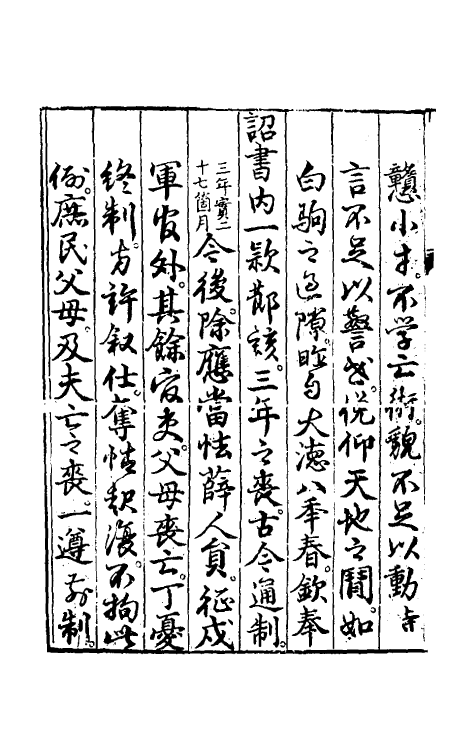 戇小才。不学亡術。貌不足以動寺
言不足以警世。俛仰天地之間。如
白駒之過隙。昨自大徳八年春。欽奉
詔書内一款節該。三年之喪。古今通制。
三年實二十七箇月
今後。除應當怯薛人員。征戍
軍官外。其餘官吏。父母喪亡。丁憂
終制。方許叙仕。奪情起復。不拘此
例。庶民父母。及夫亡之喪。一遵前制。